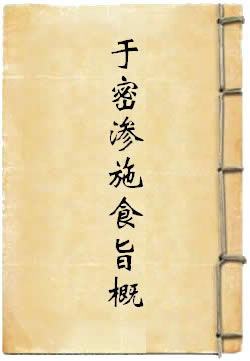 于密渗施食旨概